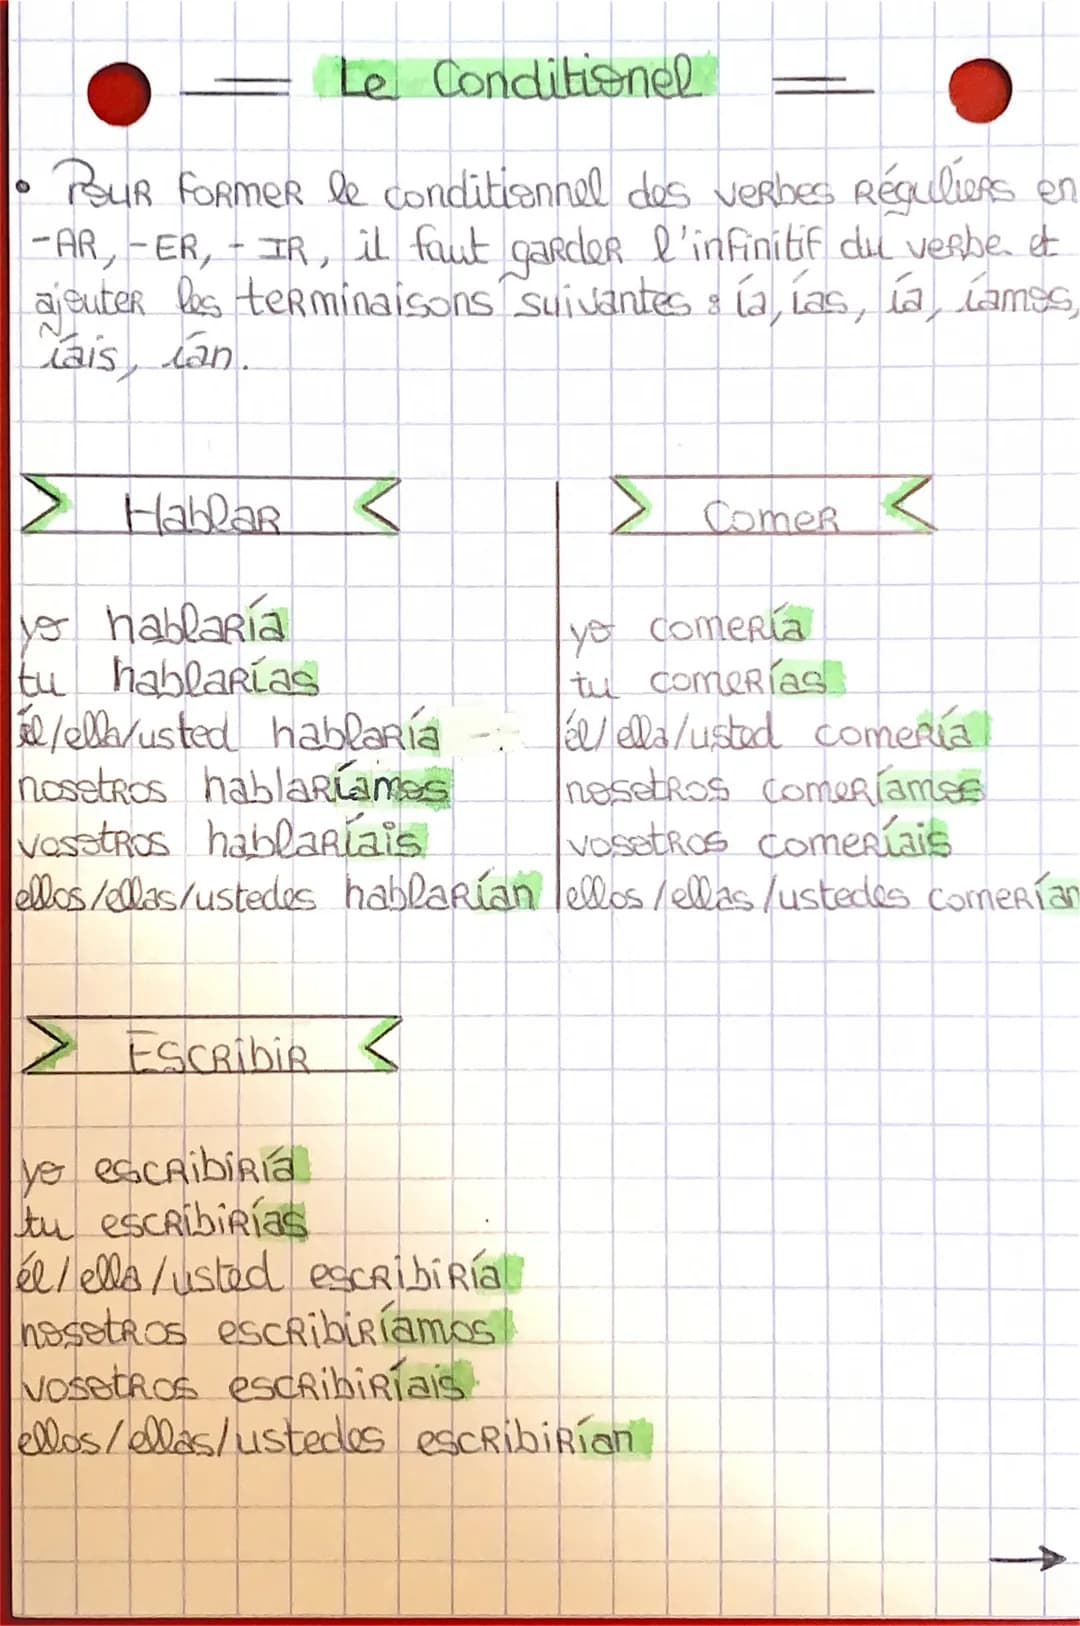 Le Conditionel
• Pour former le conditionnel des verbes réguliers en
-AR, -ER, -IR, il faut garder l'infinitif du verbe et
ajouter les terminaisons suivantes : ía, ías, ía, íamos,
íais, ían.
Hablar
Comer
yo hablaría
tu hablarías
él/ella/usted hablaría
nosotros hablaríamos
vosotros hablaríais
ellos/ellas/ustedes hablarían
yo comería
tu comerías
él/ella/usted comería
nosotros comeríamos
vosotros comeríais
ellos/ellas/ustedes comerían
Escribir
yo escribiría
tu escribirías
él/ella/usted escribiría
nosotros escribiríamos
vosotros escribiríais
ellos/ellas/ustedes escribirían